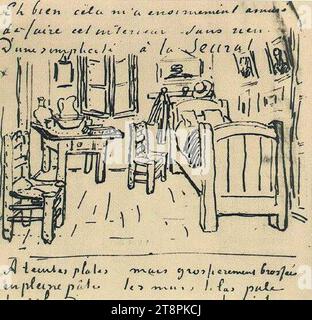 Eh bien cela m'a enormement amusé
de faire cet interieur sans rien
D'une simplicité à la Seurat
A teintes plates mais grossierement brossées
en pleine pâte les murs lilas pale
alamy
Image ID: 2T8PKCJ
www.alamy.com